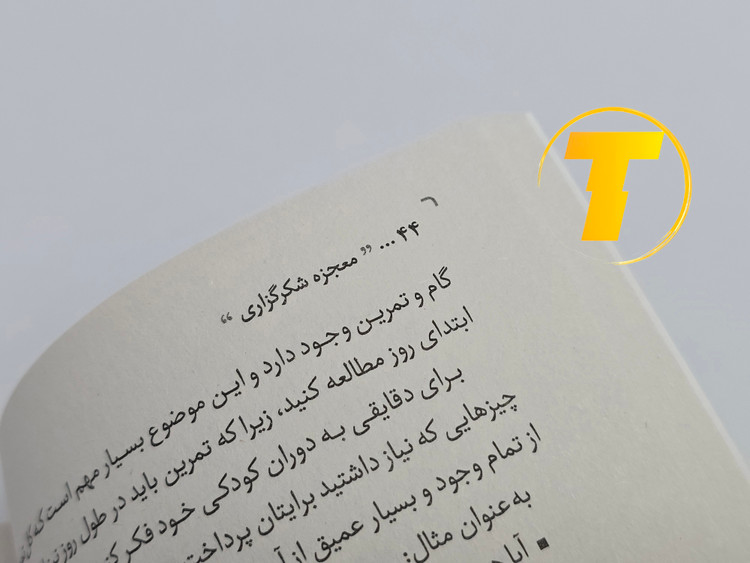 ۴۴ ... ” معجزه شکرگزاری “
گام و تمرین وجود دارد و این موضوع بسیار مهم است که
ابتدای روز مطالعه کنید، زیرا که تمرین باید در طول روز
برای دقایقی به دوران کودکی خود فکر
چیزهایی که نیاز داشتید برایتان
از تمام وجود و بسیار عمیق از
به‌عنوان مثال:
T